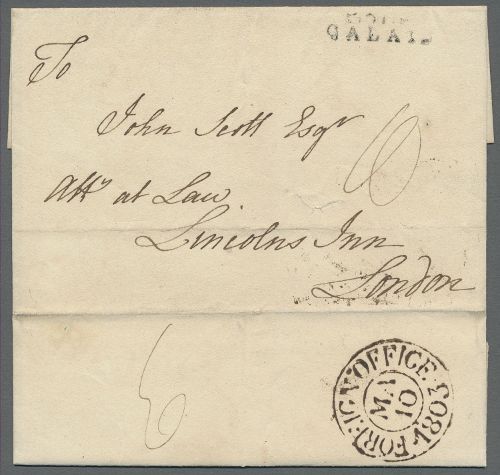 CALAIS
To
John Scott Esqr
Atty at Law
Lincolns Inn
London
10
6
FOREIGN OFFICE 1803
MA
10